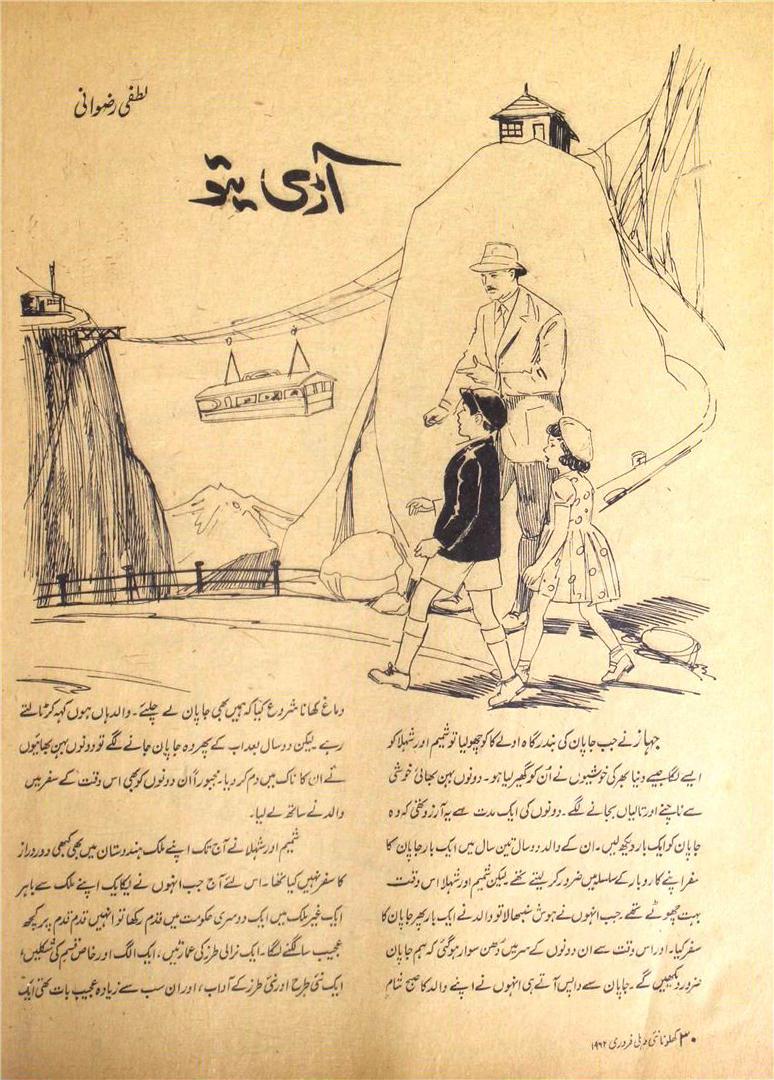 لطفی رضوانی
آڑی یتو
جہاز نے جب جاپان کی بندرگاہ اولے کا کو چھولیا تو شمیم اور شہلا کو
ایسے لگا جیسے دنیا بھر کی خوشیوں نے اُن کو گھیر لیا ہو۔ دونوں بہن بھائی خوشی
سے ناچنے اور تالیاں بجانے لگے۔ دونوں کی ایک مدت سے یہ آرزو تھی کہ وہ
جاپان کو ایک بار دیکھ لیں۔ ان کے والد دو سال تین سال میں ایک بار جاپان کا
سفر اپنے کاروبار کے سلسلہ میں ضرور کر لیتے تھے۔ لیکن شمیم اور شہلا اس وقت
بہت چھوٹے تھے۔ جب انہوں نے ہوش سنبھالا تو والد نے ایک بار پھر جاپان کا
سفر کیا۔ اور اس وقت سے ان دونوں کے سر میں دُھن سوار ہو گئی کہ ہم جاپان
ضرور دیکھیں گے۔ جاپان سے واپس آتے ہی انہوں نے اپنے والد کا صبح شام
دماغ کھانا شروع کیا کہ ہمیں بھی جاپان لے چلیئے۔ والد ہاں ہوں کہہ کر ٹالتے
رہے لیکن دو سال بعد اب کے پھر وہ جاپان جانے لگے تو دونوں بہن بھائیوں
نے ان کا ناک میں دم کر دیا۔ مجبوراً اُن دونوں کو بھی اس وقت کے سفر میں
والد نے ساتھ لے لیا۔
شمیم اور شہلا نے آج تک اپنے ملک ہندوستان میں بھی کبھی دور دراز
کا سفر نہیں کیا تھا۔ اس لئے آج جب انہوں نے یکایک اپنے ملک سے باہر
ایک غیر ملک میں ایک دوسری حکومت میں قدم رکھا تو انہیں قدم قدم پر کچھ
عجیب سا لگنے لگا۔ ایک نرالی طرز کی عمارتیں، ایک الگ اور خاص قسم کی شکلیں؛
ایک نئی طرح اور نئی طرز کے آداب، اور ان سب سے زیادہ عجیب بات تھی ایک
۳۰ کھلونا نئی دہلی فروری ۱۹۶۲